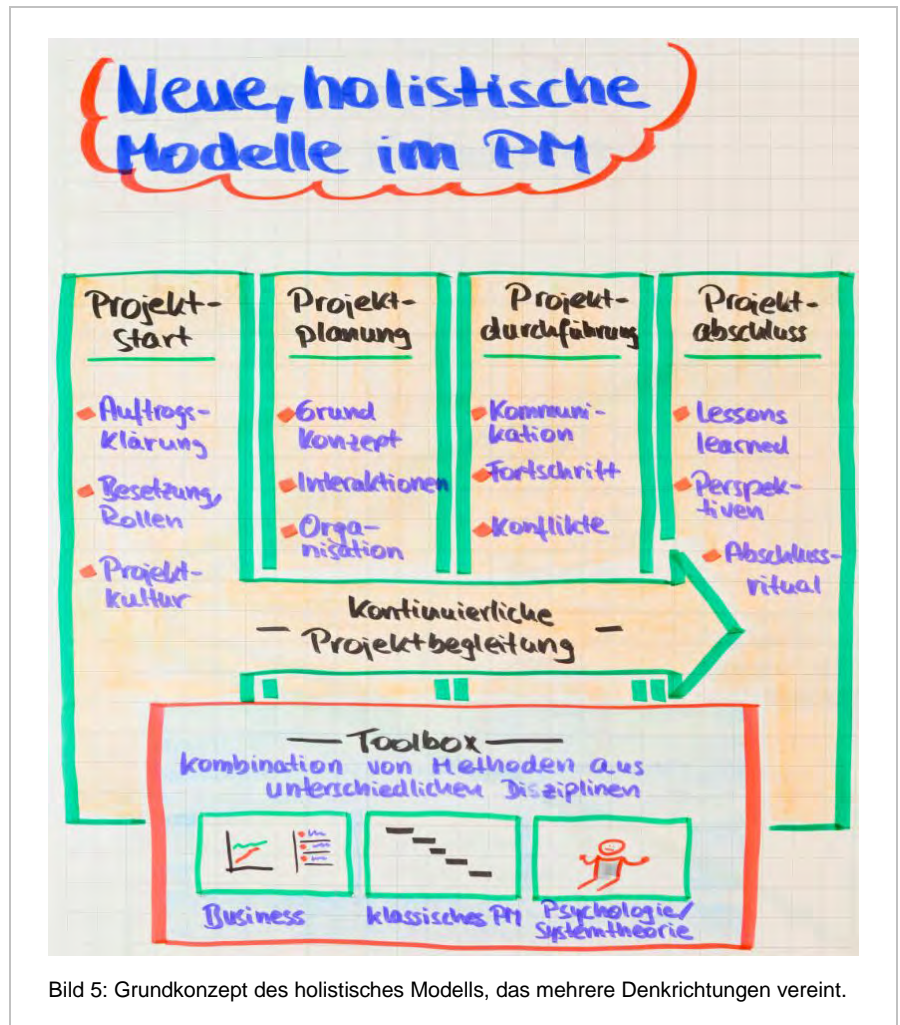 Neue, holistische
Modelle im PM
Projekt-
start
Auftrags-
klärung
Besetzung,
Rollen
Projekt-
kultur
Projekt-
planung
Grund
Konzept
Interaktionen
Orga-
nisation
Projekt-
durchführung
Kommuni-
kation
Fortschritt
Konflikte
Projekt-
abschluss
Lessons
learned
Perspek-
tiven
Abschluss-
ritual
Kontinuierliche
Projektbegleitung
Toolbox
Kombination von Methoden aus
unterschiedlichen Disziplinen
Business
klassisches PM
Psychologie/
Systemtheorie
Bild 5: Grundkonzept des holistisches Modells, das mehrere Denkrichtungen vereint.